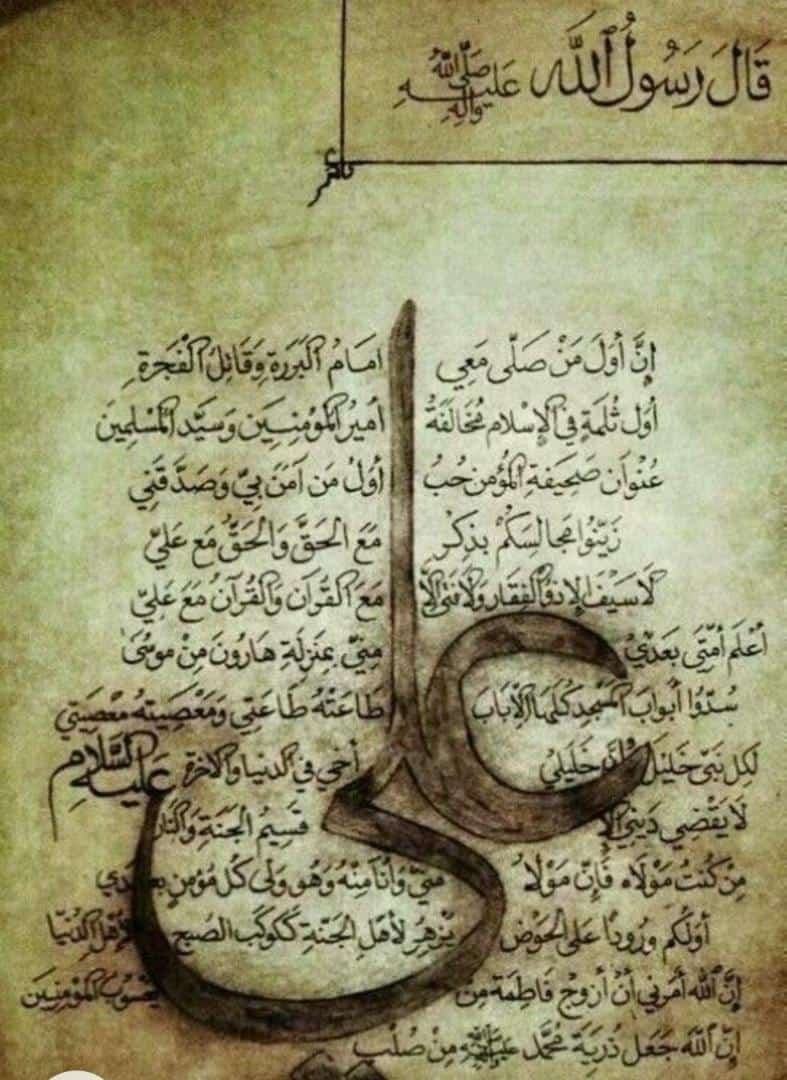 قَالَ رَسُولُ ٱللَّه صَلَّى اللهُ عَلَيهِ وَآلِهِ
إِنَّ أَوَلَ مَنْ صَلَّى مَعِي امَامُ البَرَرَةِ وَقَاتِلُ الْفَجَرَةِ
أَوَل ثُلْمَةٍ في الإِسْلام مُخَالَفَةُ أَمِيرُ المُؤمِنِين وَسَيَّد المُسْلِمِينَ
عُنْوَان صَحِيفَةِ المُؤْمن حُبُ أَوَلُ مَن آمَنَ بِيّ وَصَدَّقَنِي
زَيّنُوا مَجالسِكُمْ بذِكْرِ مَعَ الحَقَّ وَالْحَقُّ مَع عَلِيّ
لَا سَيفَ إلا ذو الفِقَار وَلَا فَتى إلا مَعَ القُرآنَ وَالقُرآنُ مَعَ عَلِيّ
أَعْلَم أُمَتَّي بَعدْيّ مِنيّ بِمَنزِلَةِ هَارُونَ مِنْ موسَىٰ
سُدّوُا أَبوابَ المَسْجِد كُلَها إلا بَابَ طَاعَتُهُ طَاعَتِي وَمَعْصِيتهُ مَعْصِيَتي
لَكِل نَبيّ خَليْل وَإِنَّ خَلِيْلي أَخي في الدنيا والآخرة
عَلَيهِ السَّلَام
لَا يَقْضِي دَيني إلا قَسِيمُ الجَنةِ وَالنَار
مِنْ كُنتُ مَوْلَاه فَإِنَّ مَوْلَاهُ مِنيّ وَأَنَا مِنْهُ وَهُوَ وَلى كُلُ مُؤمنٍ بعدي
أَوَلُكُم ورُودًا عَلى الحَوْض يزهِرُ لأَهلِ الجَنّةِ كَكَوكَب الصبح لأَهْل الدُنيَا
إِنَّ اللَّه أَمَرَني أَنْ أُزَوِجُ فَاطِمَة مِنْ يَعْسُوبُ المُؤمِنِينَ
إِنّ اللَّهَ جَعَل ذُرِيَة مُحَمَّد مِنْ صُلْبِ
علي